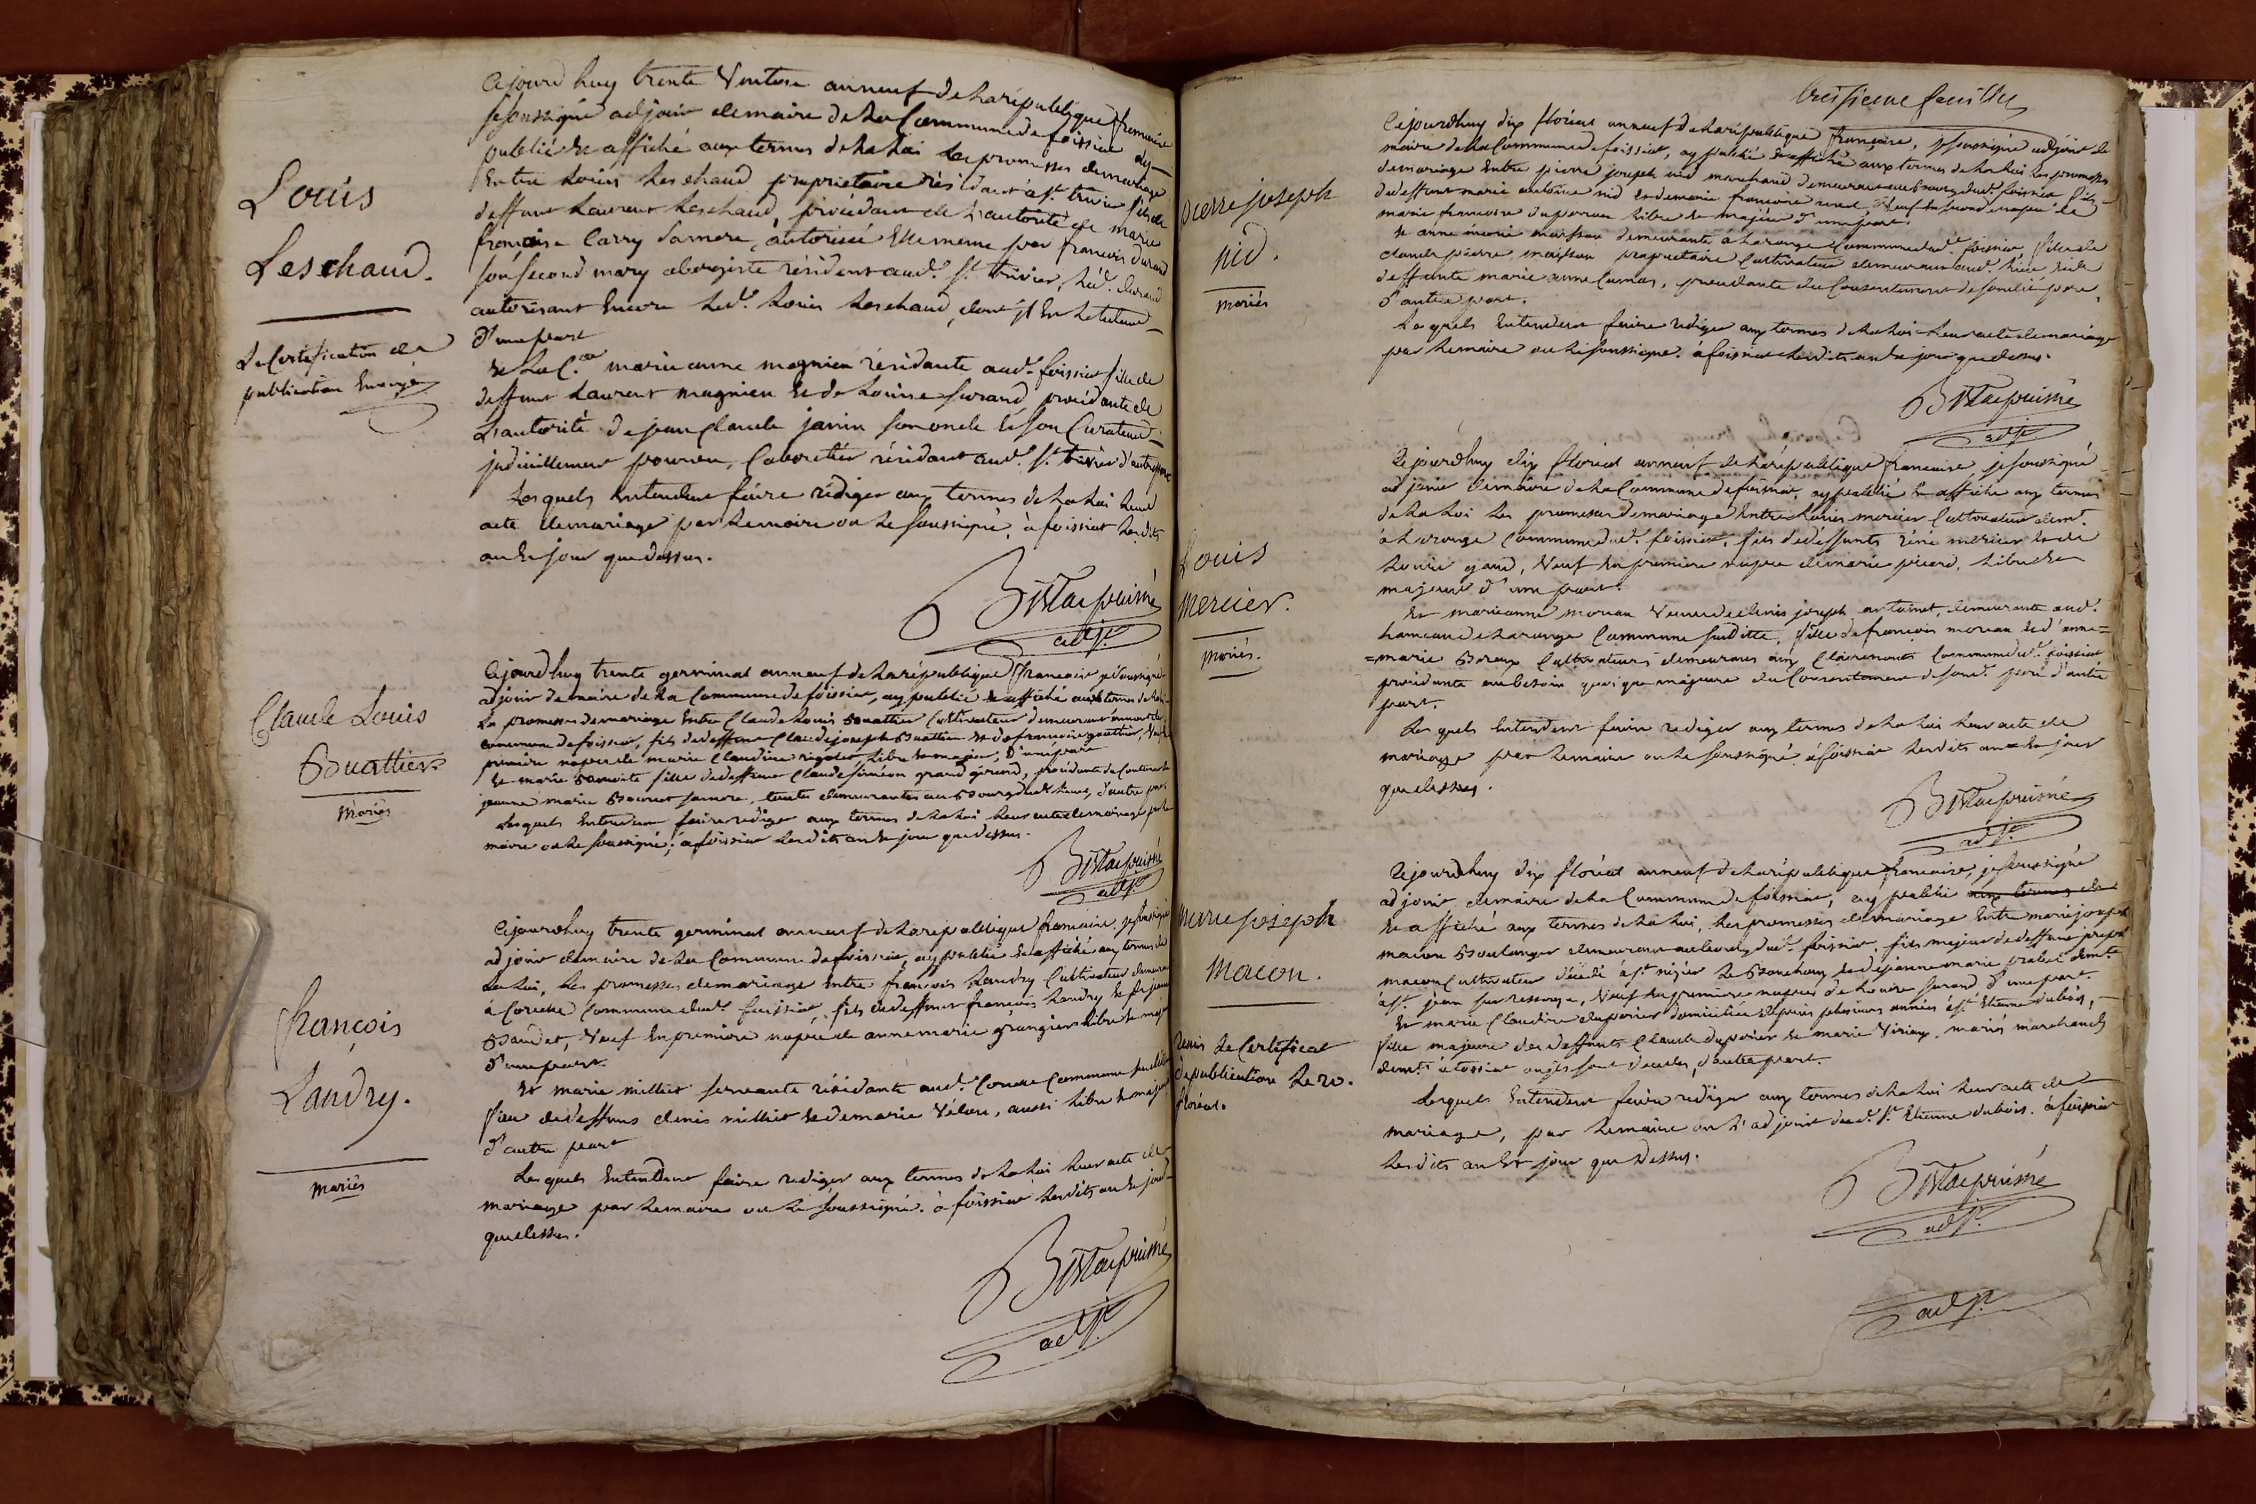 Cejourd'huy trente Ventose an neuf de la république francaise
je soussigné adjoint de maire de la Commune de foissiat ay
publié et affiché aux termes de la loi les promesses de mariage
Entre Louis Leschaud propriétaire résidant à st. trivier fils de
deffunt Laurent Leschaud, procédant de l'autorité de marie
françoise Carry sa mere, autorisée Elle meme par francois durand
son second mary aubergiste résident aud. st. trivier, led. durand
autorisant Encore led. Louis Leschaud, dont il Est le tuteur
d'une part
Louis
Leschaud.
Le Certification de
publication Envoyé
Et la C.ne marie anne magnien résidante aud. foissiat fille de
deffunt Laurent magnien et de Louise furand procédante de
L'autorité de jean Claude janin son oncle et son Curateur
judiciellement pourvu, Cabaretier résidant aud. st. trivier d'autre part
Lesquels entendent faire rédiger aux termes de la loi leur
acte de mariage par le maire ou le soussigné, à foissiat lesdits
an et jour que dessus.
adjt.
Cejourd'huy trente germinal an neuf de la république francaise je soussigné
adjoint de maire de la Commune de foissiat, ay publié et affiché aux termes de la loi
les promesses de mariage Entre Claude Louis Buattier Cultivateur demeurant
commune de foissiat, fils de deffunt Claude joseph Buattier et de francoise gauthier, Veuf En
premiere nopce de marie Claudine rigolet, libre et majeur, d'une part
Et marie Benoite fille de deffunt Claude siméon grand gérard, procédante de l'autorité de
jeanne marie Bournet sa mere, toutes demeurantes au Bourg dud. lieux, d'autre part
Lesquels Entendent faire rediger aux termes de la loi leur acte de mariage par le
maire ou le soussigné, à foissiat lesdits an et jour que dessus.
Claude Louis
Buattier
Mariés
adjt.
Cejourd'huy trente germinal an neuf de la république francaise, je soussigné
adjoint de maire de la Commune de foissiat, ay publié et affiché aux termes de
la loi, les promesses de mariage Entre francois Landry Cultivateur demeurant
à Coreille Commune dud. foissiat, fils de deffunt françois Landry et de jeanne
Baudet, Veuf En premiere nopce de anne marie grangier libre et majeur
d'une part.
François
Landry.
Mariés
Et marie millet servante résidante aud. Commune susditte
fille de deffunts denis millet et de marie Velon, aussi libre et majeure
d'autre part
Lesquels Entendent faire rediger aux termes de la loi leur acte de
mariage par le maire ou le soussigné. à foissiat lesdits an et jour
que dessus.
adjt.
treizieme feuillet
Cejourdhuy dix floréal an neuf de la république française, je soussigné adjoint de
maire de la Commune de foissiat, ay publié et affiché aux termes de la loi les promesses
de mariage Entre pierre joseph nid marchand demeurant au Bourg dud. foissiat fils
de deffunt marie antoine nid et de marie francoise Veuf En second nopce de
marie francoise duperron libre et majeur d'une part.
Et anne marie moissan demeurante à la range Commune dud. foissiat, fille de
Claude pierre moissan propriétaire Cultivateur demeurant aud. lieu et de
deffunte marie anne Cumas, procédante du Consentement de sondit pere,
d'autre part.
Pierre joseph
nid.
Mariés
Lesquels Entendent faire rediger aux termes de la loi leur acte de mariage
par le maire ou le soussigné. à foissiat lesdits an et jour que dessus.
adjt.
Cejourdhuy dix floréal an neuf de la république francaise je soussigné
adjoint de maire de la Commune de foissiat, ay publié et affiché aux termes
de la loi les promesses de mariage Entre Louis mercier Cultivateur demt.
à la range Commune dud. foissiat, fils de deffunts réné mercier et de
Louise gaud, Veuf En premiere nopce de marie picard, libre et
majeur d'une part.
Louis
Mercier.
Mariés.
Et marieanne moreau Veuve de denis joseph antoinet, demeurante aud.
hameau de la range Commune susditte, fille de francois moreau et d'anne
marie Boraux Cultivateurs demeurans aux Clairemonts Commune dud. foissiat
procédante au besoin quoique majeure du Consentement de sond. pere d'autre
part.
Lesquels Entendent faire rediger aux termes de la loi leur acte de
mariage par le maire ou le soussigné, à foissiat lesdits an et jour
que dessus.
adjt.
Cejourdhuy dix floréal an neuf de la république francaise, je soussigné
adjoint de maire de la Commune de foissiat, ay publié aux termes de
et affiché aux termes de la loi, les promesses de mariage Entre marie joseph
macon Boulanger demeurant au bourg dud. foissiat, fils majeur de deffunt joseph
macon Cultivateur décédé à st. nizier le Bouchoux et de jeanne marie pralet demt.
à st. jean sur ressouze, Veuf En premiere nopces de Louise furand d'une part.
Et marie Claudine duperier domiciliée depuis plusieurs années à st. Etienne dubois,
fille majeure de deffunts Claude duperier et marie Virieux, mariés marchands
demts. à foissiat ou ils sont décédés, d'autre part.
Marie joseph
Macon.
Remis le Certificat
de publication le 20.
floréal.
Lesquels Entendent faire rediger aux termes de la loi leur acte de
mariage, par le maire ou l'adjoint dud. st. Etienne dubois. à foissiat
lesdits an Et jour que dessus.
adjt.
adjt.